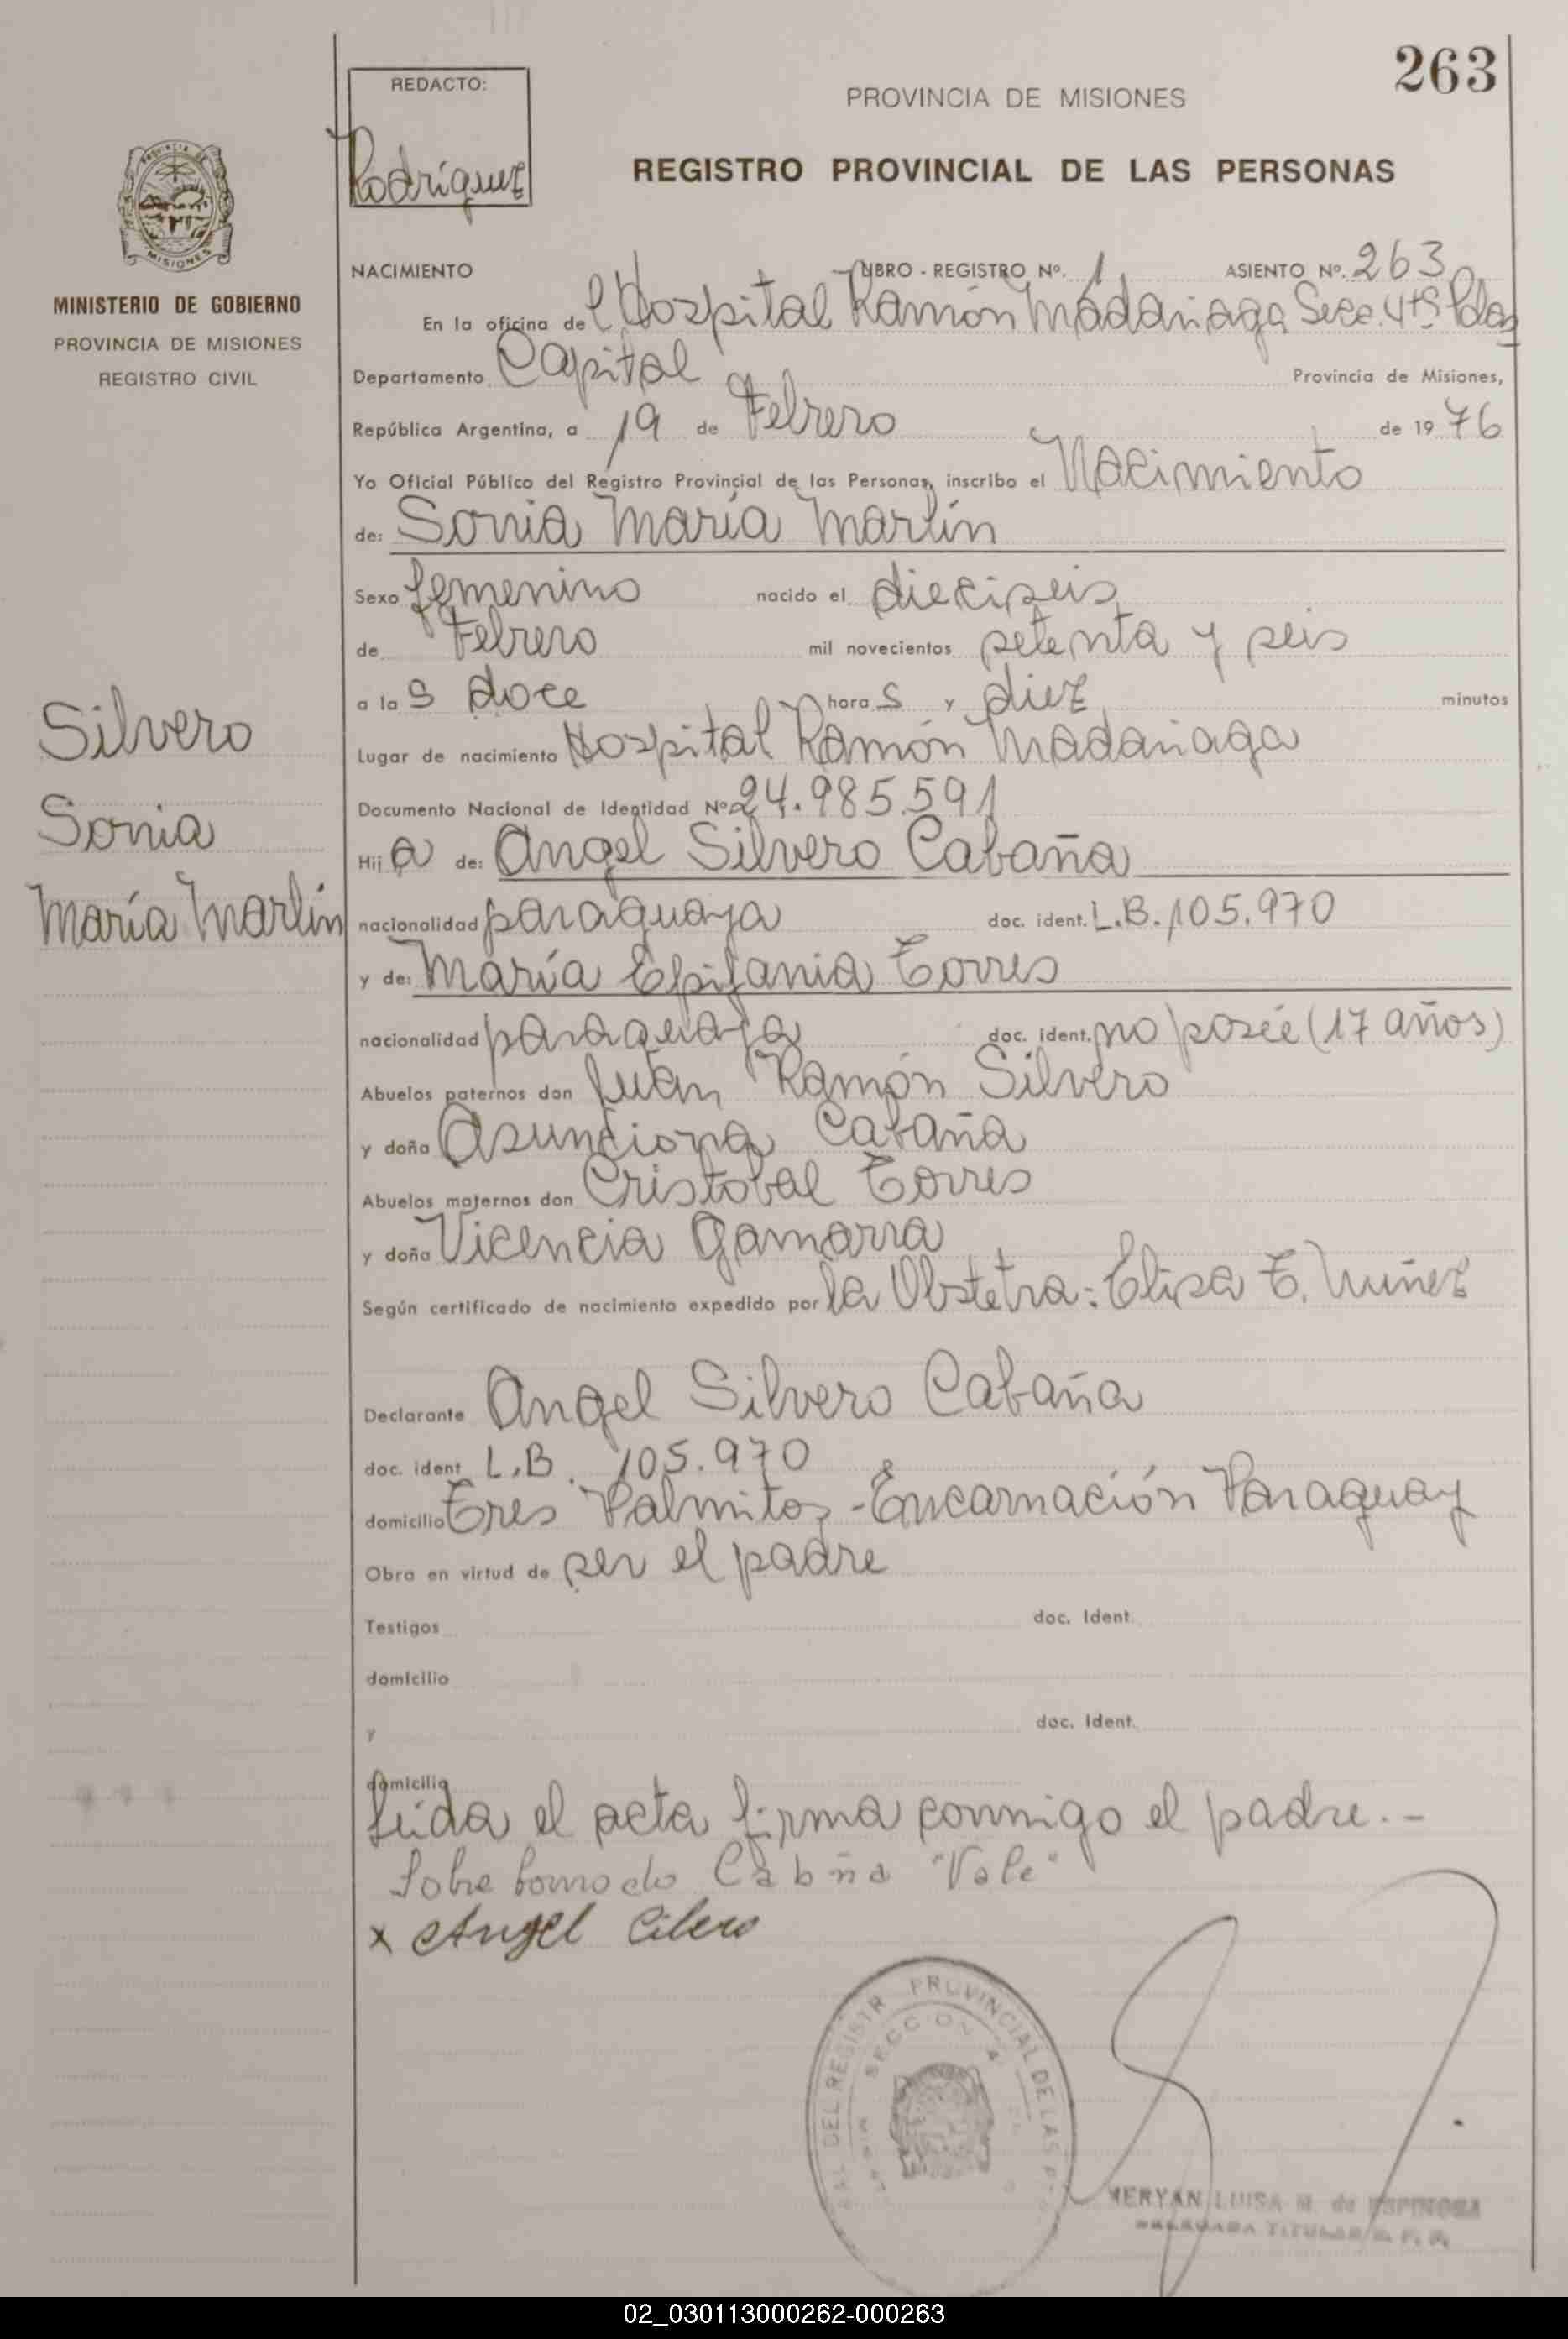 263
REDACTO:
Rodríguez
PROVINCIA DE MISIONES
REGISTRO PROVINCIAL DE LAS PERSONAS
MISIONES
MINISTERIO DE GOBIERNO
PROVINCIA DE MISIONES
REGISTRO CIVIL
NACIMIENTO LIBRO - REGISTRO Nº. 1 ASIENTO Nº. 263
En la oficina del Hospital Ramón Madariaga Secc. 4ta Pdas
Departamento Capital Provincia de Misiones,
República Argentina, a 19 de Febrero de 1976
Yo Oficial Público del Registro Provincial de las Personas, inscribo el Nacimiento
de: Sonia María Marlín
Sexo femenino nacido el dieciseis
de Febrero mil novecientos setenta y seis
a las doce horas y diez minutos
Lugar de nacimiento Hospital Ramón Madariaga
Documento Nacional de Identidad Nº 24.985.591
Hija de: Angel Silvero Cabaña
nacionalidad paraguaya doc. ident. L.B. 105.970
y de: María Epifania Torres
nacionalidad paraguaya doc. ident. no posée (17 años)
Abuelos paternos don Juan Ramón Silvero
y doña Asunciona Cabaña
Abuelos maternos don Cristobal Torres
y doña Vicencia Gamarra
Según certificado de nacimiento expedido por la Obstetra: Elisa E. Nuñez
Silvero
Sonia
María Marlín
Declarante Angel Silvero Cabaña
doc. ident. L.B. 105.970
domicilio Tres Palmitos - Encarnación Paraguay
Obra en virtud de ser el padre
Testigos doc. Ident.
domicilio
y doc. Ident.
domicilio
Leida el acta firma conmigo el padre.-
Sobre borrado Cabña "Vale"
x Angel Cilero
DEL REGISTR PROVINCIAL DE LAS P
SECCION 4
MERYAN LUISA M. de ESPINOSA
TITULAR
02_030113000262-000263